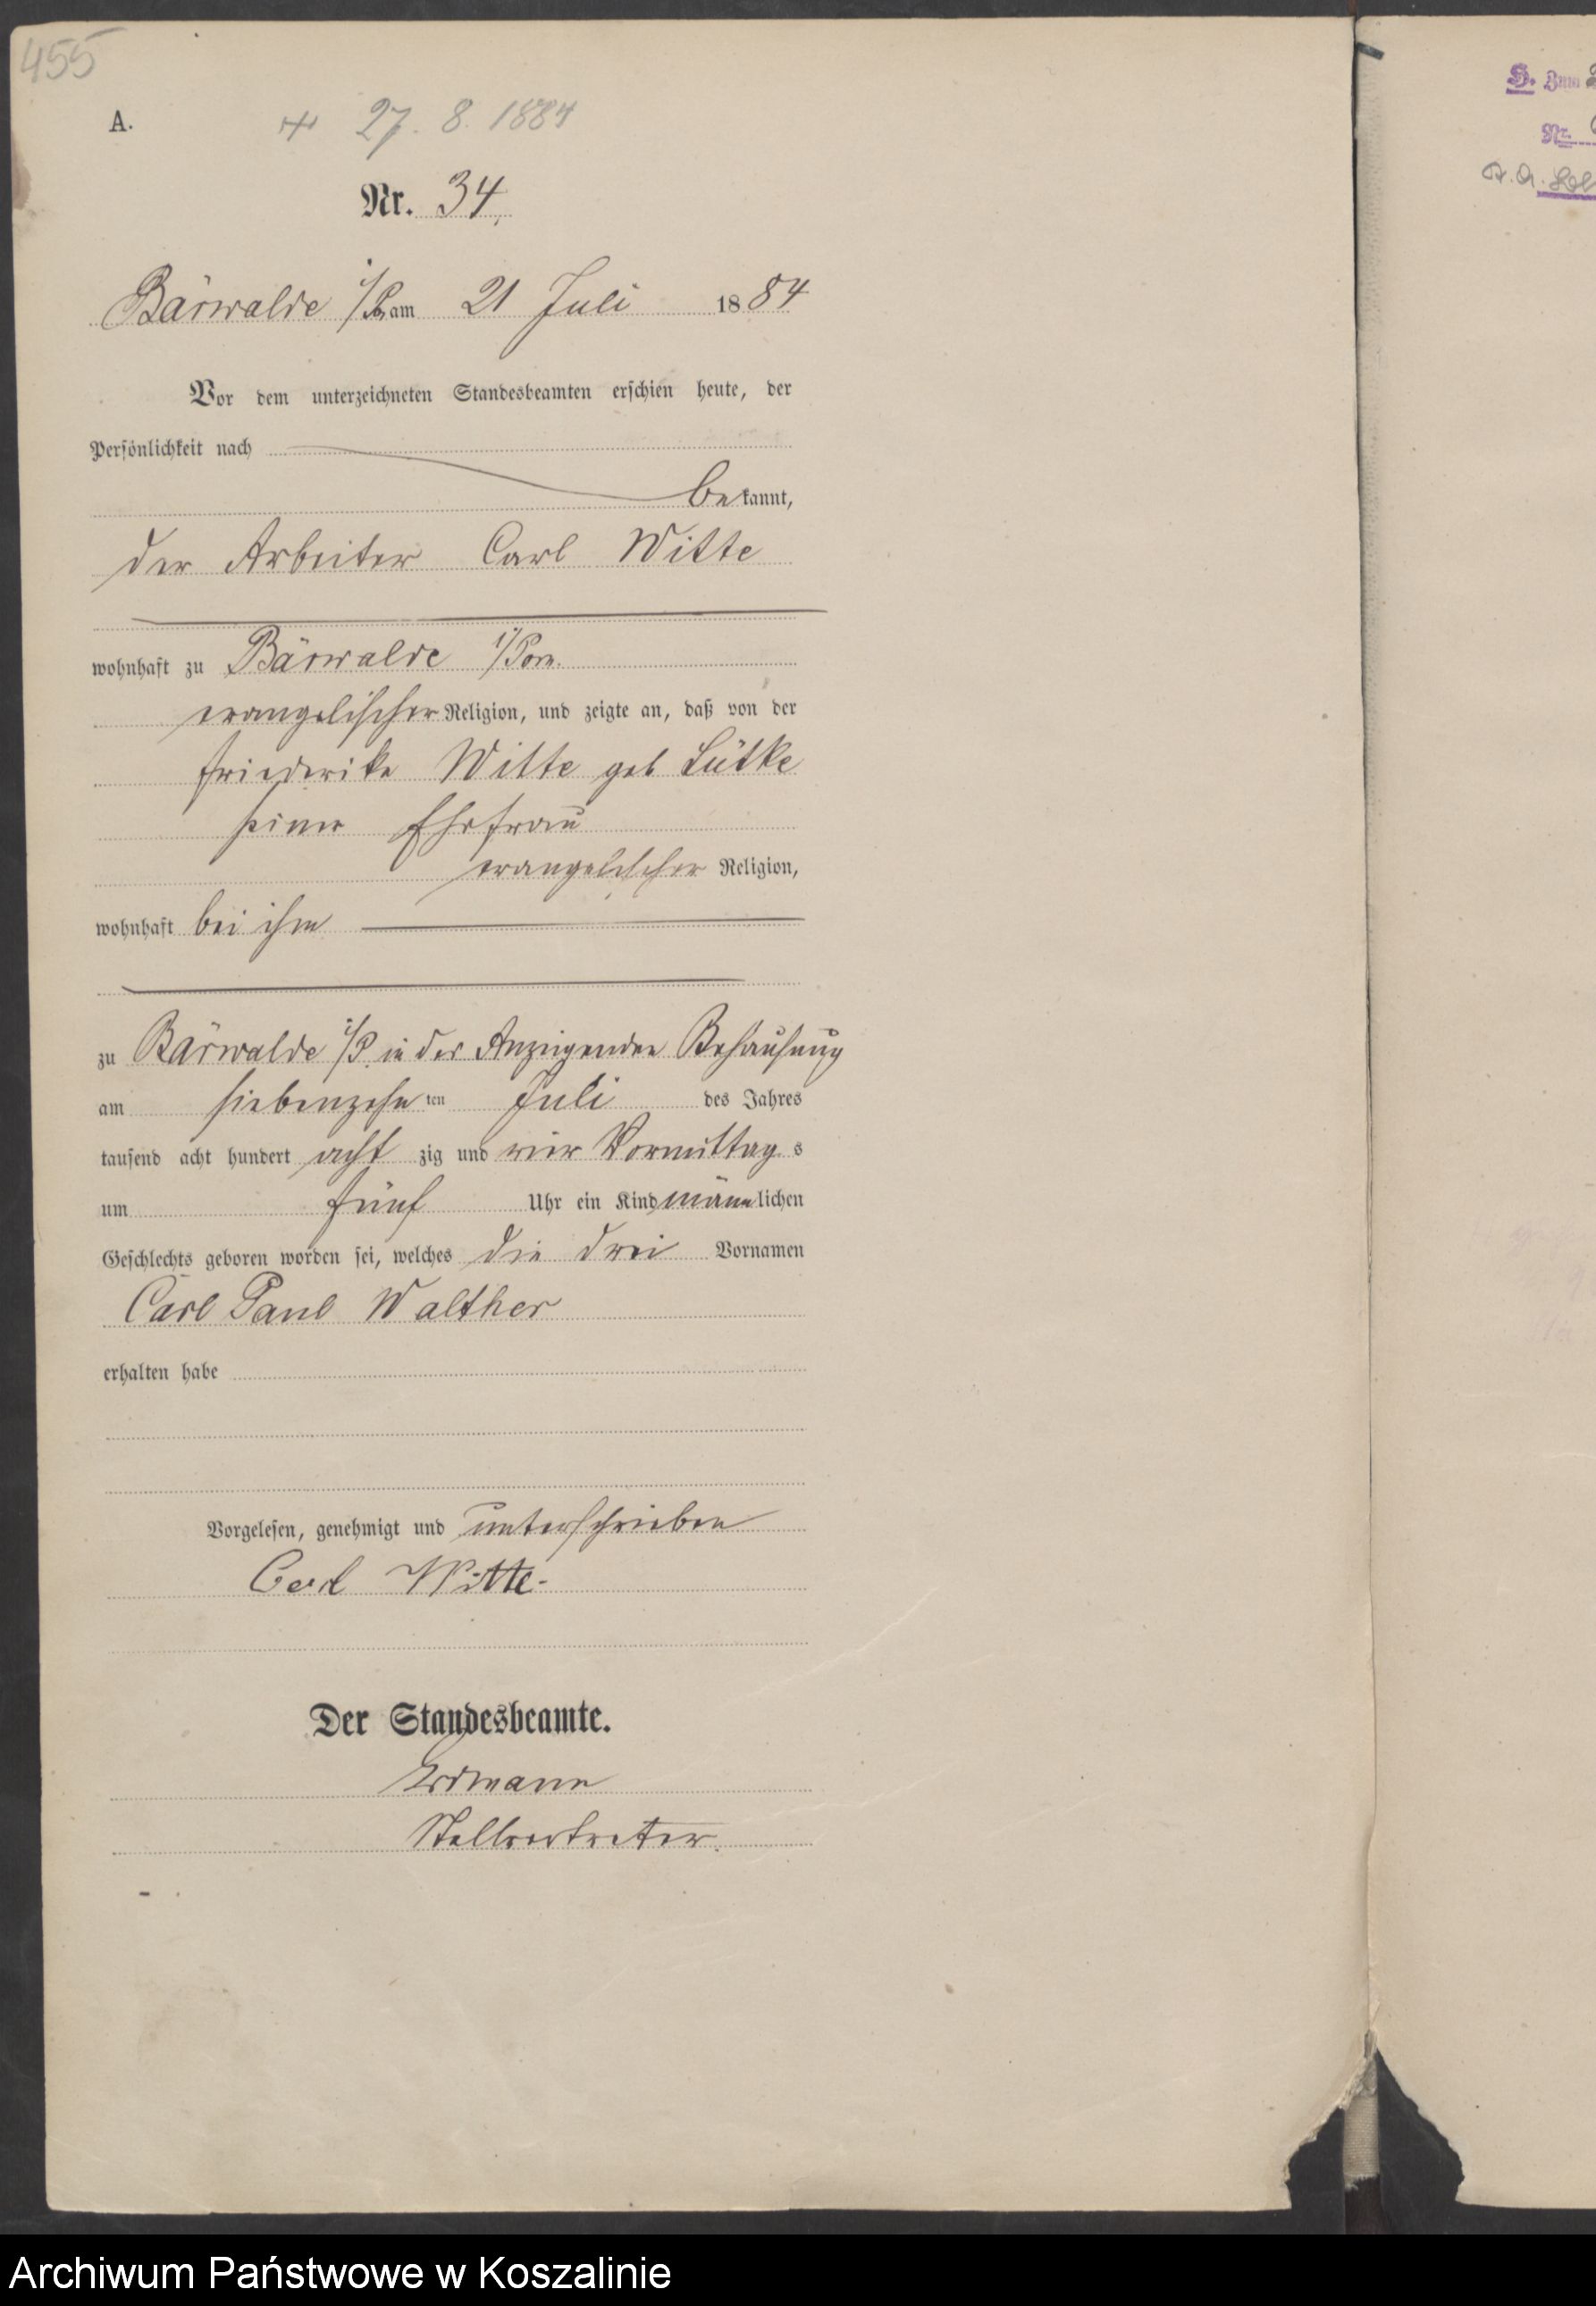 455
A.
+ 27. 8. 1884
Nr. 34.
Bärwalde i/P. am 21 Juli 1884
Vor dem unterzeichneten Standesbeamten erschien heute, der
Persönlichkeit nach
bekannt,
der Arbeiter Carl Witte
wohnhaft zu Bärwalde i/Pom.
evangelischer Religion, und zeigte an, daß von der
Friederike Witte geb Lütke
seiner Ehefrau
evangelischer Religion,
wohnhaft bei ihm
zu Bärwalde i/P. in der Anzeigenden Behausung
am siebenzehnten Juli des Jahres
tausend acht hundert achtzig und vier Vormittags
um fünf Uhr ein Kind männlichen
Geschlechts geboren worden sei, welches die drei Vornamen
Carl Paul Walther
erhalten habe
Vorgelesen, genehmigt und unterschrieben
Carl Witte.
Der Standesbeamte.
Erdmann
Stellvertreter.
Nr.
Archiwum Państwowe w Koszalinie